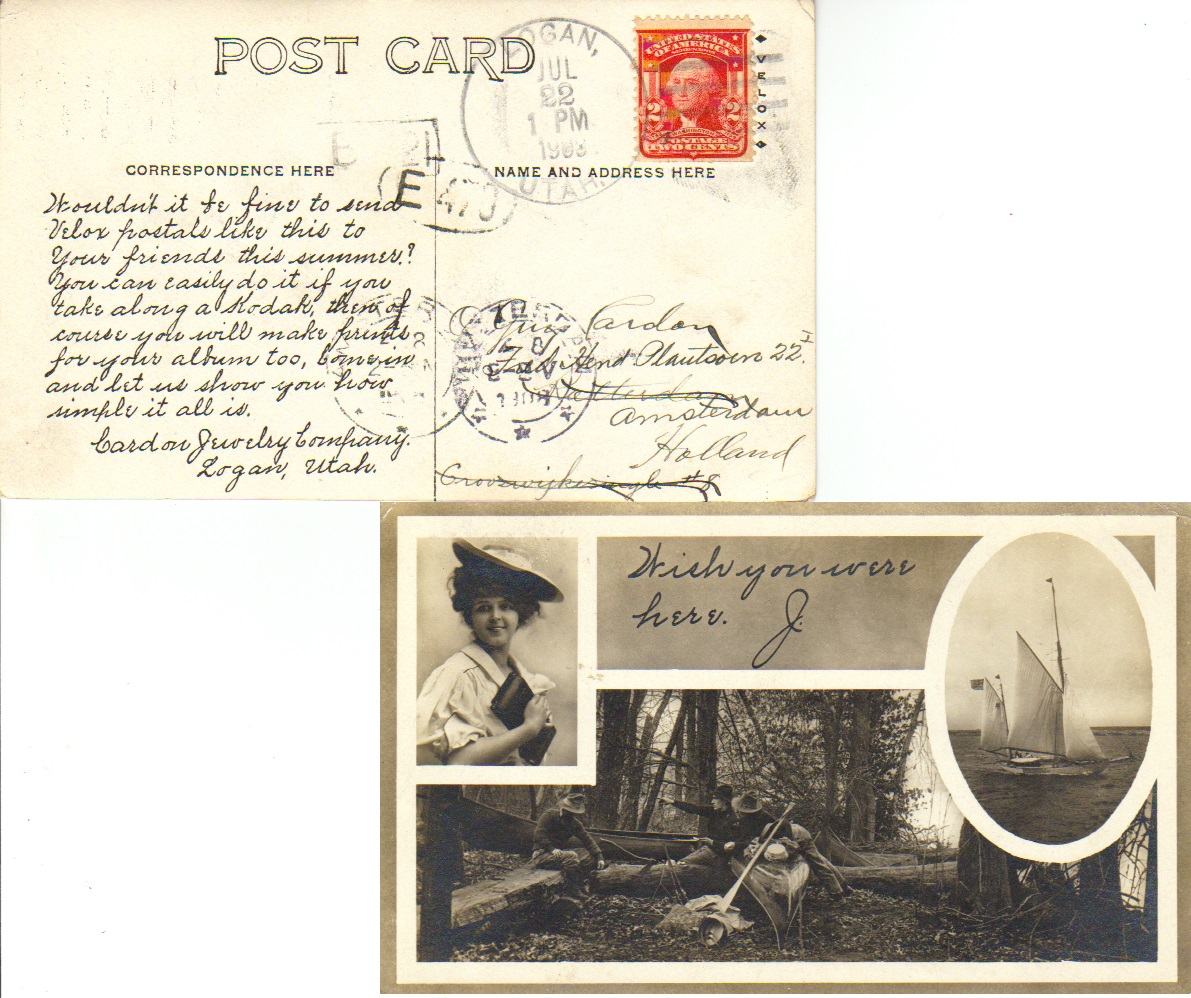 POST CARD
LOGAN,
JUL
22
1 PM
UTAH.
UNITED STATES
OF AMERICA
2 2
POSTAGE
TWO CENTS
VELOX
CORRESPONDENCE HERE
NAME AND ADDRESS HERE
E
Wouldn't it be fine to send
Velox postals like this to
Your friends this summer?
You can easily do it if you
take along a Kodak, then of
course you will make prints
for your album too, Come in
and let us show you how
simple it all is.
Cardon Jewelry Company.
Logan, Utah.
Guy Cardon
Zuid
22
Rotterdam
Amsterdam
Holland
Wish you were
here. J.